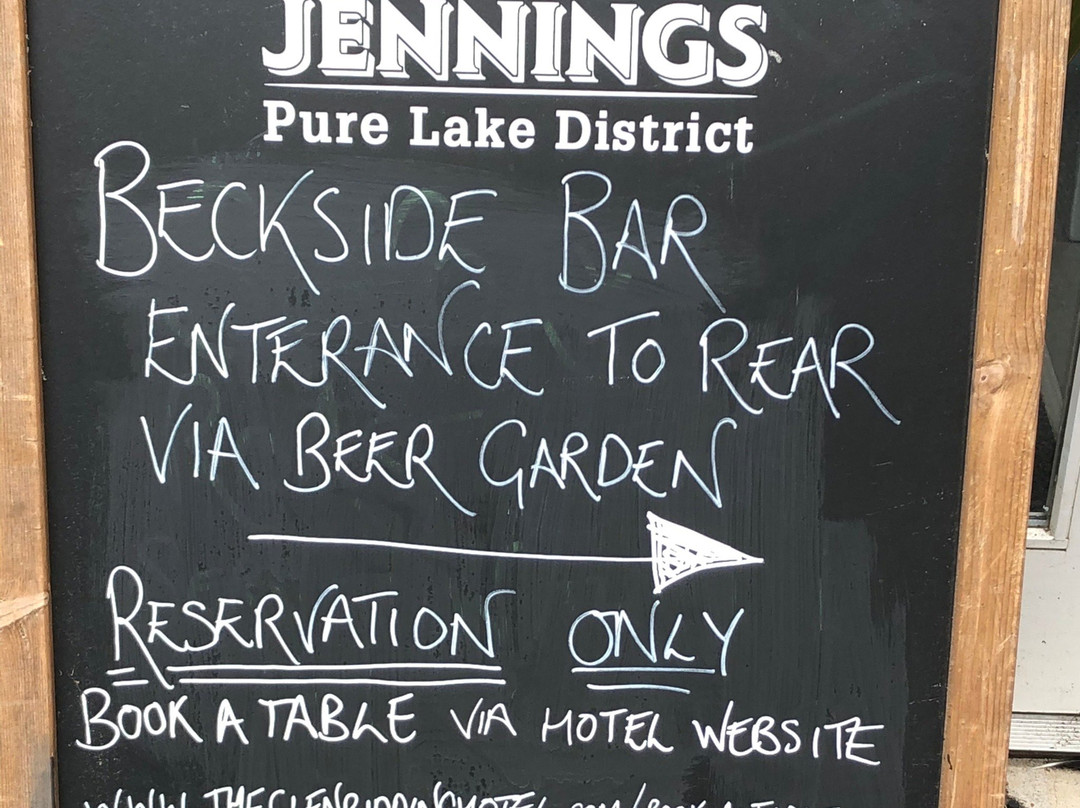 JENNINGS
Pure Lake District
BECKSIDE BAR
ENTERANCE TO REAR
VIA BEER GARDEN
RESERVATION ONLY
BOOK A TABLE VIA HOTEL WEBSITE